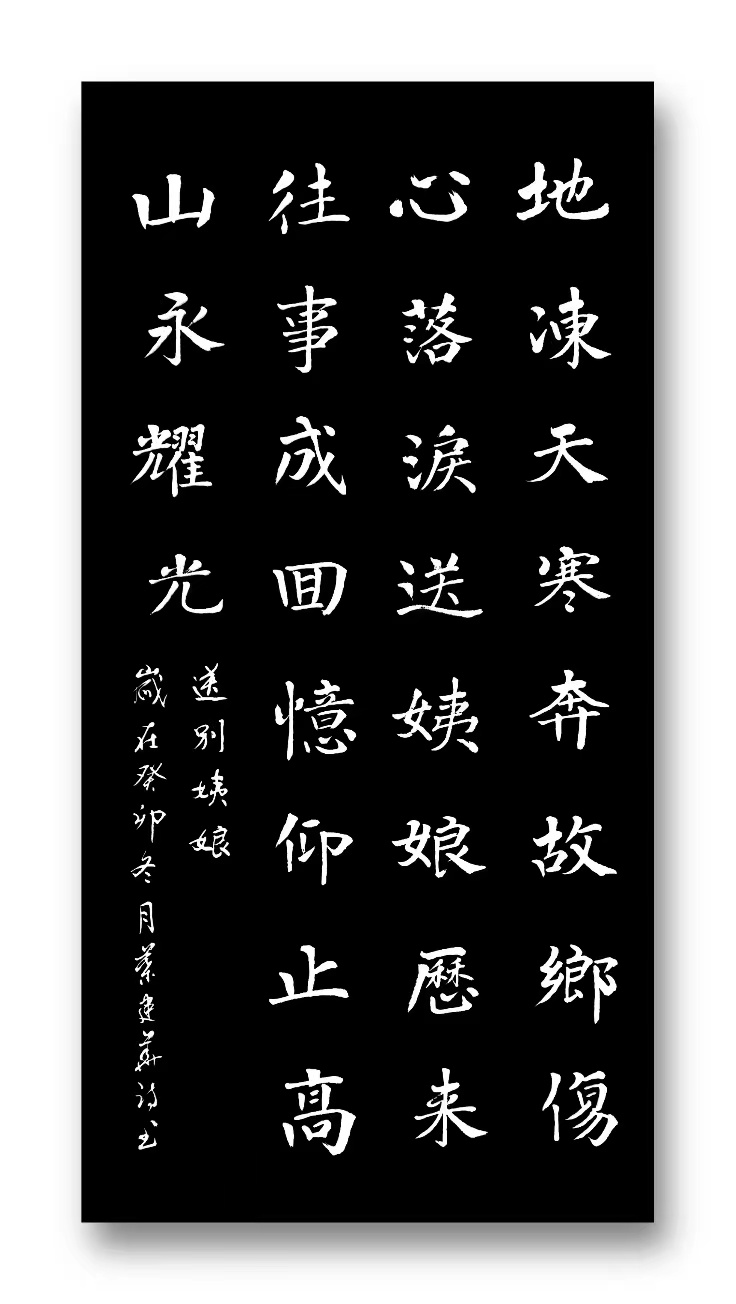 地凍天寒奔故鄉傷
心落淚送姨娘歷来
往事成囬憶仰止髙
山永耀光
送别姨娘
歲在癸卯冬月蔡建華诗书